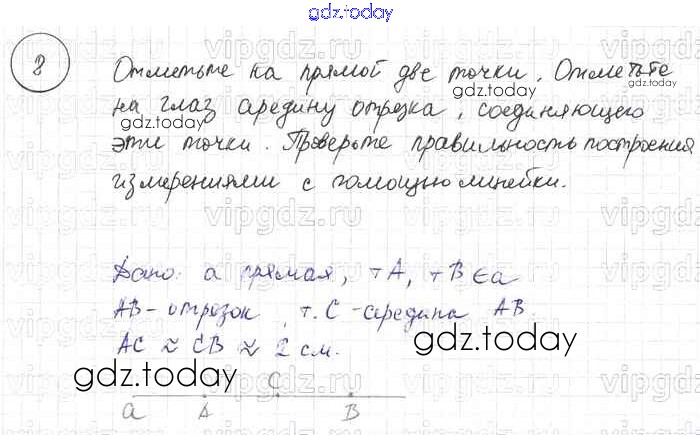 gdz.today
8
Отметьте на прямой две точки. Отметьте
на глаз середину отрезка, соединяющего
эти точки. Проверьте правильность построения
измерениями с помощью линейки.
Дано: a прямая, т A, т B ∈ a
AB - отрезок, т. C - середина AB.
AC ≈ CB ≈ 2 см.
gdz.today
gdz.today
gdz.today
gdz.today
gdz.today
C
a A B